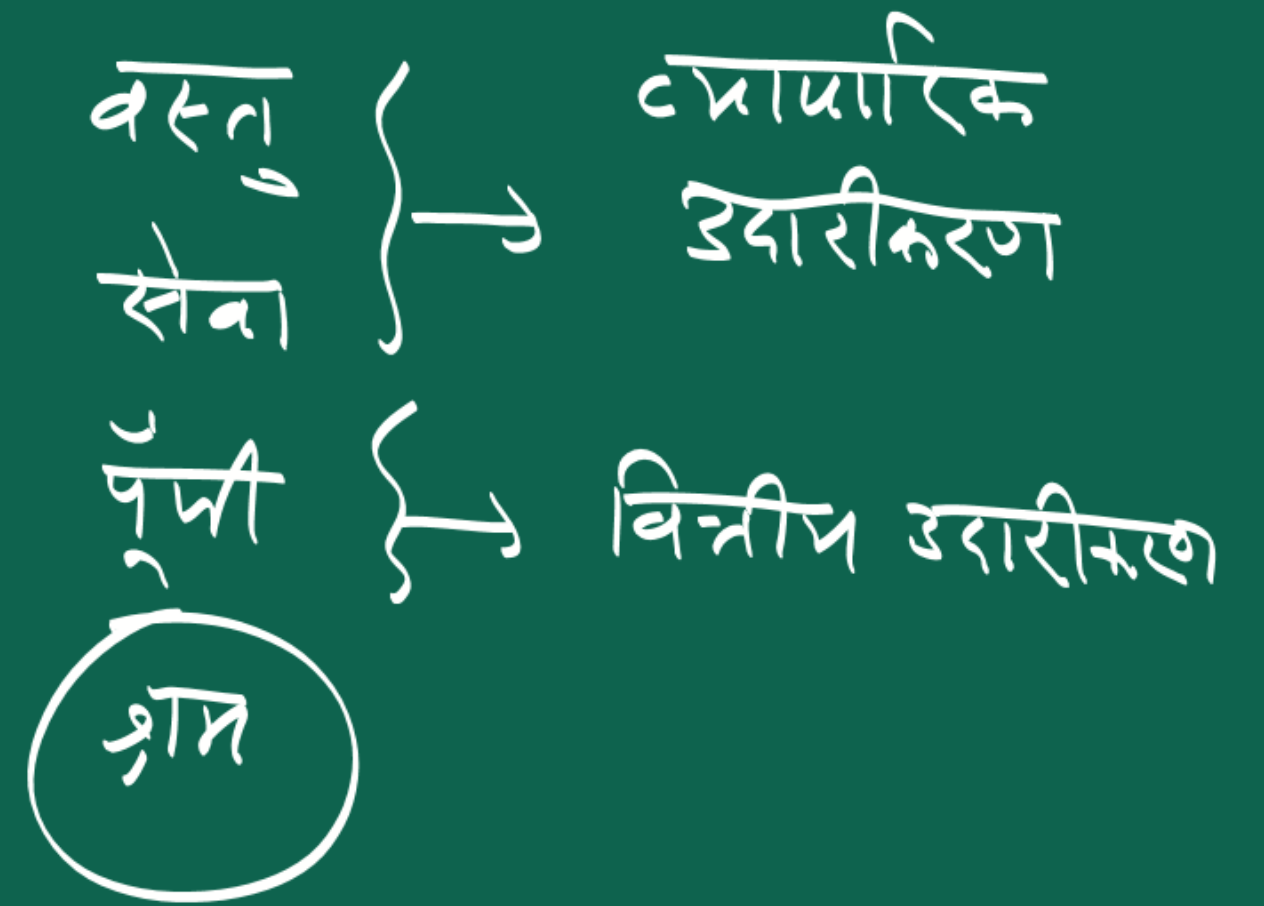 वस्तु
सेवा
व्यापारिक
उदारीकरण
पूँजी
वित्तीय उदारीकरण
श्रम